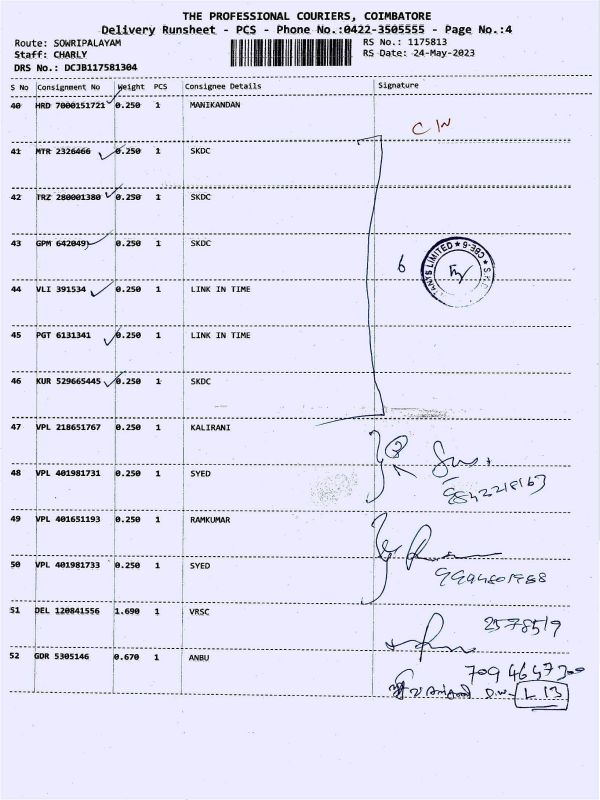 THE PROFESSIONAL COURIERS, COIMBATORE
Delivery Runsheet - PCS - Phone No.:0422-3505555 - Page No.:4
Route: SOWRIPALAYAM RS No.: 1175813
Staff: CHARLY RS Date: 24-May-2023
DRS No.: DCJB117581304
S No Consignment No Weight PCS Consignee Details Signature
40 HRD 7000151721 0.250 1 MANIKANDAN
41 MTR 2326466 0.250 1 SKDC
42 TRZ 280001380 0.250 1 SKDC
43 GPM 642049 0.250 1 SKDC
6
44 VLI 391534 0.250 1 LINK IN TIME
45 PGT 6131341 0.250 1 LINK IN TIME
46 KUR 529665445 0.250 1 SKDC
47 VPL 218651767 0.250 1 KALIRANI
48 VPL 401981731 0.250 1 SYED
9842218163
49 VPL 401651193 0.250 1 RAMKUMAR
50 VPL 401981733 0.250 1 SYED
51 DEL 120841556 1.690 1 VRSC
2578519
52 GDR 5305146 0.670 1 ANBU
L 13